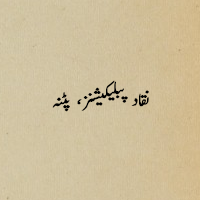 نقاد پبلیکیشنز، پٹنہ